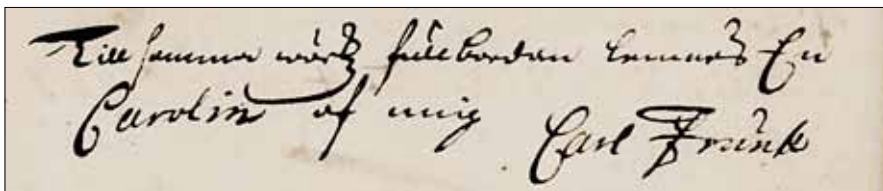 Till samma wärk fullbordan lemnas En
Carolin af mig Carl Frunk